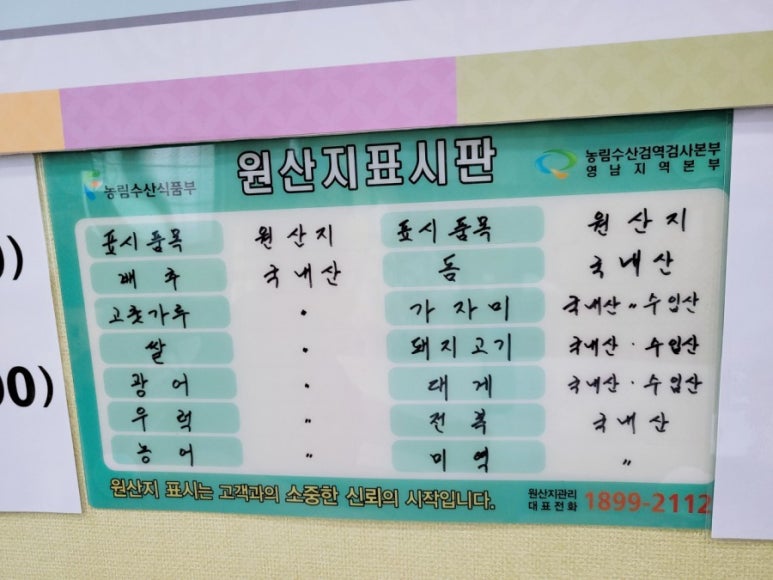 원산지표시판
농림수산식품부
농림수산검역검사본부
영남지역본부
표시품목 원산지 표시품목 원산지
배추 국내산 돔 국내산
고춧가루 〃 가자미 국내산〃수입산
쌀 〃 돼지고기 국내산·수입산
광어 〃 대게 국내산·수입산
우럭 〃 전복 국내산
농어 〃 미역 〃
원산지 표시는 고객과의 소중한 신뢰의 시작입니다.
원산지관리
대표전화 1899-2112
)
00)